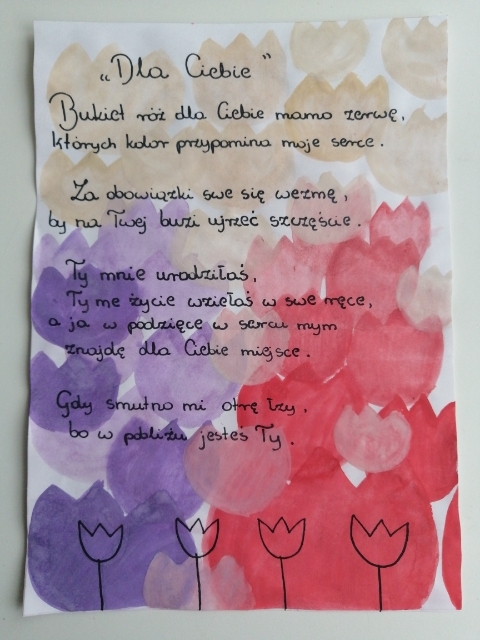 „Dla Ciebie”
Bukiet róż dla Ciebie mamo zerwę,
których kolor przypomina moje serce.
Za obowiązki swe się wezmę,
by na Twej buzi ujrzeć szczęście.
Ty mnie urodziłaś,
Ty me życie wzięłaś w swe ręce,
a ja w podzięce w sercu mym
znajdę dla Ciebie miejsce.
Gdy smutno mi otrę łzy,
bo w pobliżu jesteś Ty.